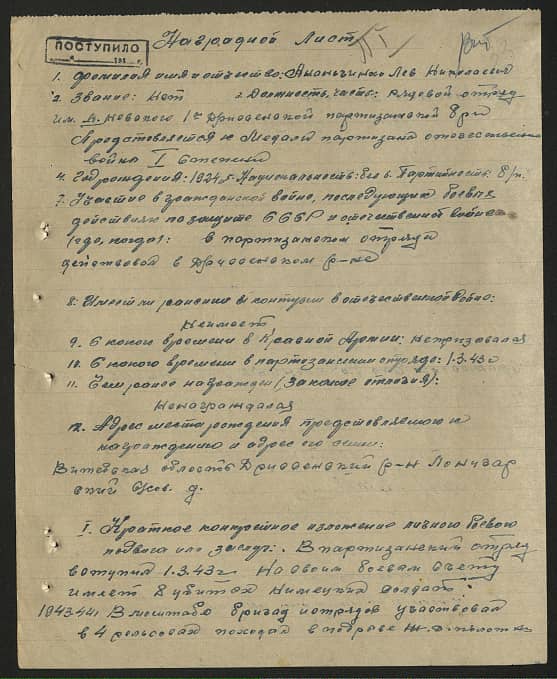 ПОСТУПИЛО
194 г.
Наградной Лист
1. Фамилия имя и отчество: Ананьчинко Лев Николаевич
2. Звание: Нет 3. Должность, часть: Рядовой отряд
им. А. Невского 1й Дриссенской партизанской бри
Представляется к Медали партизана отечественной
войны I степени
4. Год рождения: 1924 г. Национальность: Бел 6. Партийность: б/п.
7. Участие в гражданской войне, последующих боевых
действиях по защите СССР и отечественной войне
(где, когда): в партизанском отряде
действовал в Дриссенском р-не
8. Имеет ли ранения и контузии в отечественной войне:
Неимеет
9. С какого времени в Красной Армии: Непризовался
10. С какого времени в партизанском отряде: 1.3.43 г
11. Чем ранее награжден (за какие отличия):
Ненаграждался
12. Адрес места рождения представляемого к
награждению и адрес его семьи:
Витебская область Дриссенский р-н
д.
I. Краткое конкретное изложение личного боевого
подвига или заслуг: В партизанский отряд
вступил 1.3.43 г. На своим боевом счету
имеет 8 убитых Немецких солдат
1943-44г В масштабе бригад и отрядов участвовал
в 4 рельсовых походах в подрыве Ж.Д. полотна